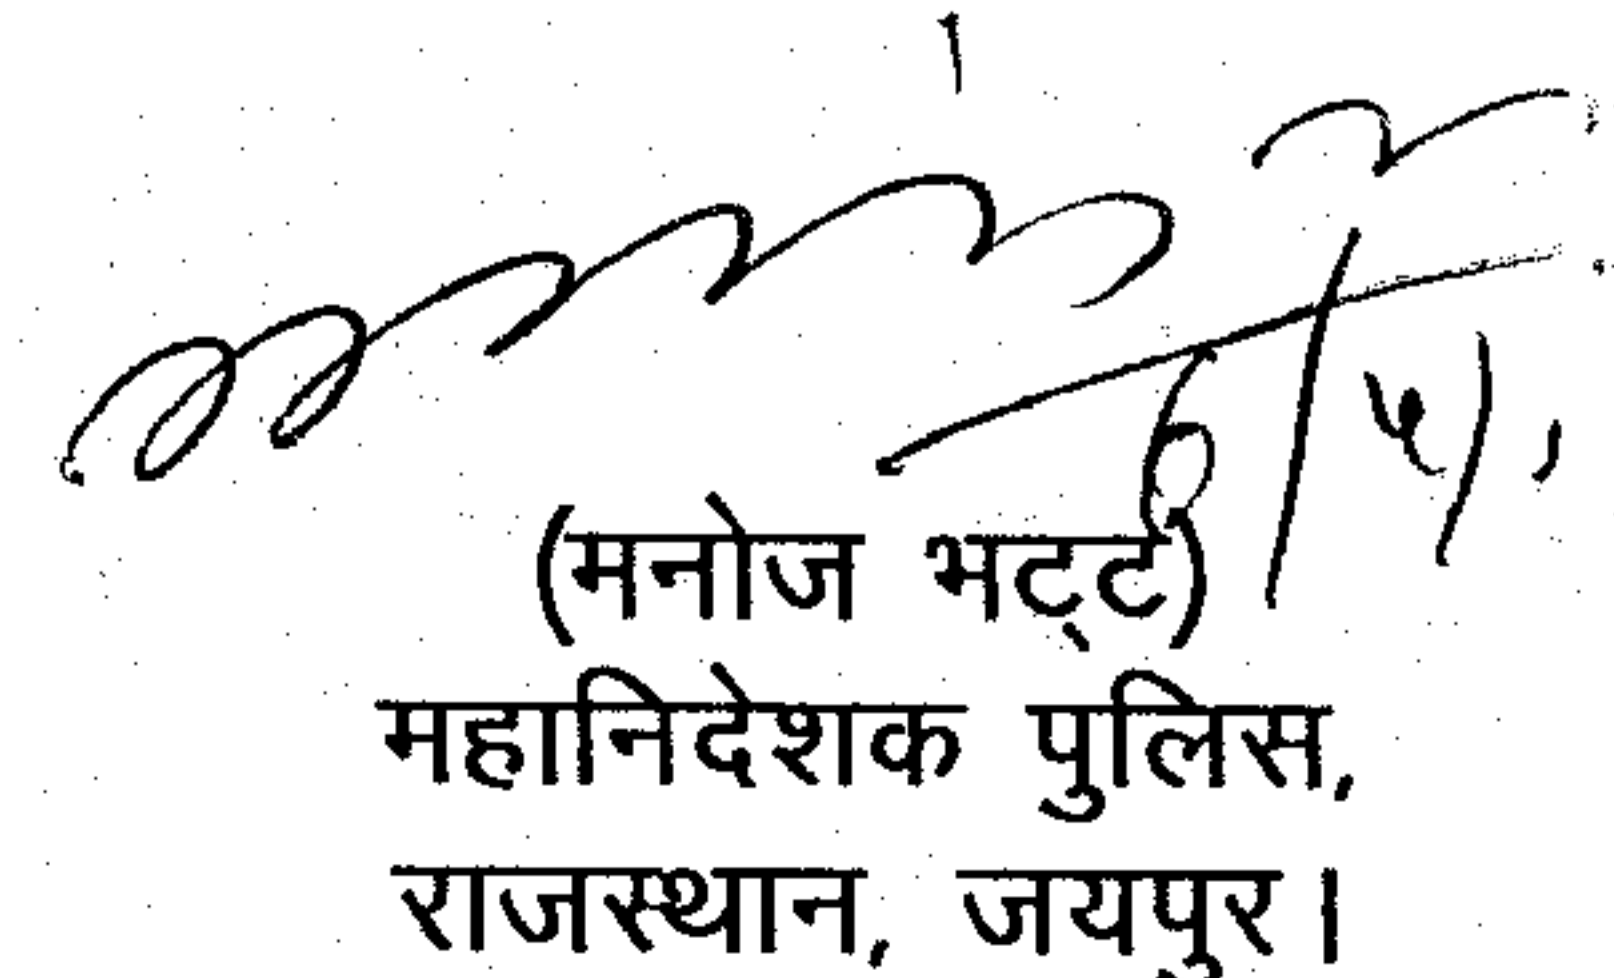 (मनोज भट्ट)
महानिदेशक पुलिस,
राजस्थान, जयपुर।